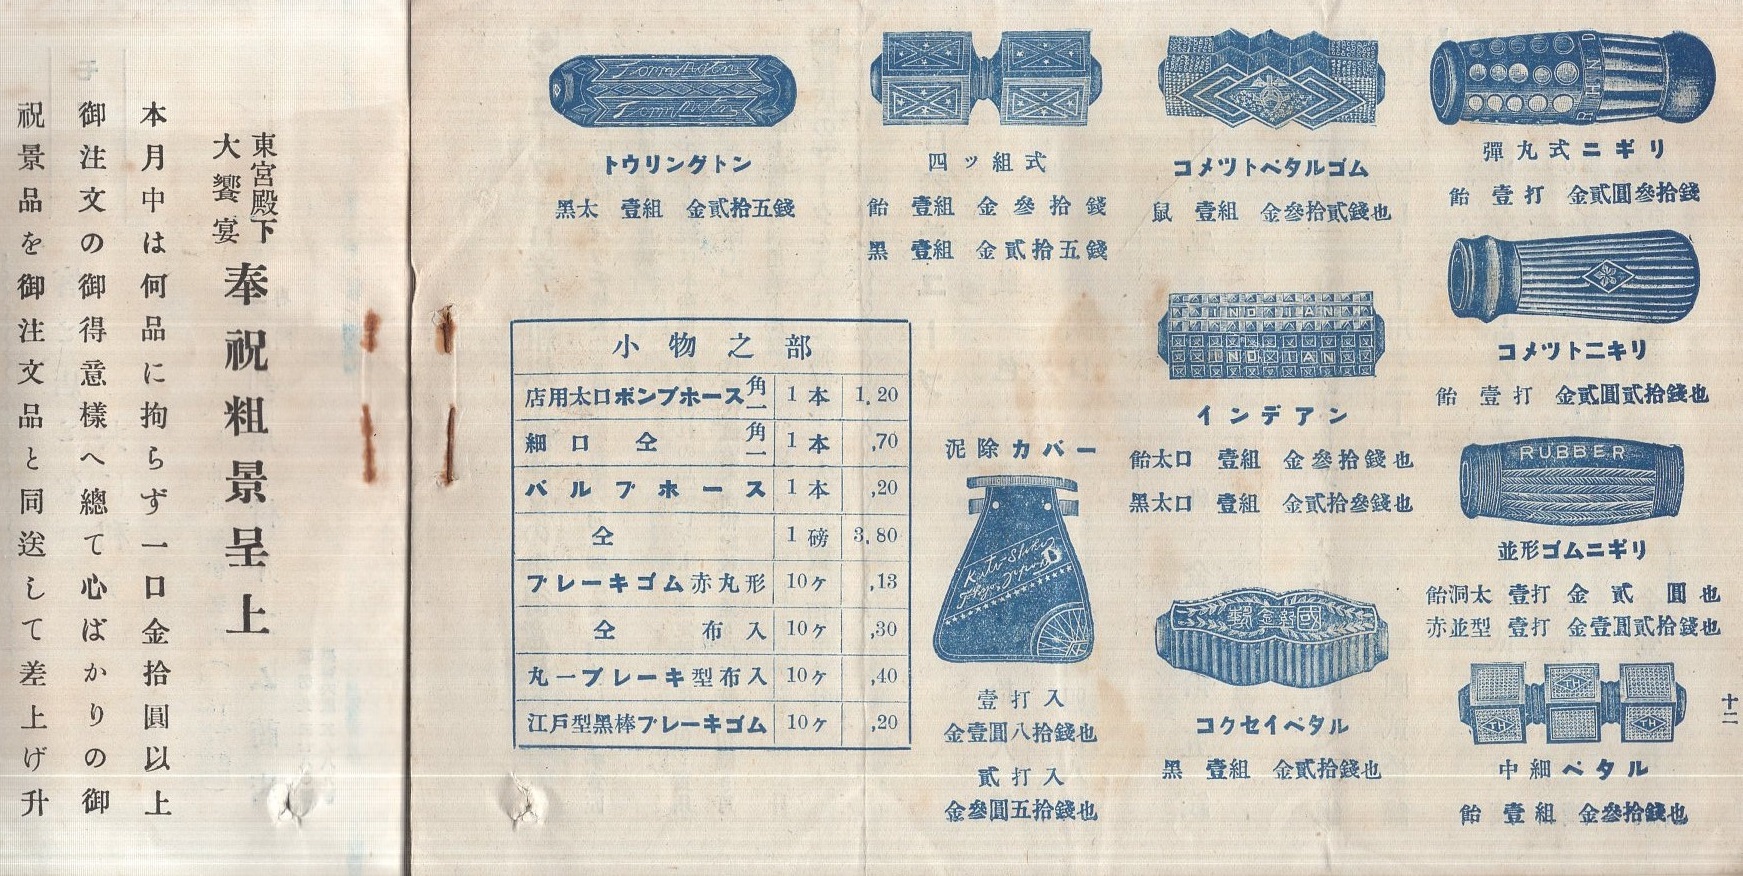 十二
RHIND
彈丸式ニギリ
飴 壹打 金貳圓參拾錢
コメツトニキリ
飴 壹打 金貳圓貳拾錢也
RUBBER
並形ゴムニギリ
飴洞太 壹打 金貳圓也
赤並型 壹打 金壹圓貳拾錢也
中細ペタル
飴 壹組 金參拾錢也
コメツトペタルゴム
鼠 壹組 金參拾貳錢也
INDIAN
INDIAN
インデアン
飴太口 壹組 金參拾錢也
黑太口 壹組 金貳拾參錢也
コクセイペタル
黑 壹組 金貳拾錢也
四ッ組式
飴 壹組 金參拾錢
黑 壹組 金貳拾五錢
泥除カバー
壹打入
金壹圓八拾錢也
貳打入
金參圓五拾錢也
トウリングトン
黑太 壹組 金貳拾五錢
小物之部
店用太口ポンプホース角一 1本 1.20
細口 仝 角一 1本 ,70
バルブホース 1本 ,20
仝 1磅 3.80
ブレーキゴム赤丸形 10ケ ,13
仝 布入 10ケ ,30
丸一ブレーキ型布入 10ケ ,40
江戸型黑棒ブレーキゴム 10ケ ,20
東宮殿下
大饗宴
奉祝粗景呈上
本月中は何品に拘らず一口金拾圓以上
御注文の御得意樣へ總て心ばかりの御
祝景品を御注文品と同送して差上げ升